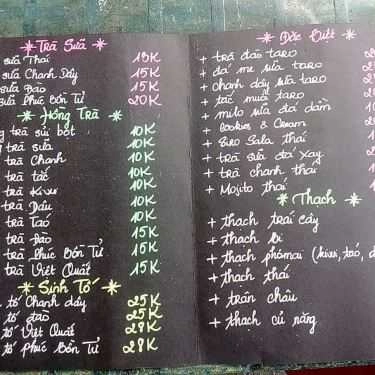 * Trà Sữa *
sữa Thái 15K
sữa Chanh Dây 15K
sữa Đào 15K
sữa Phúc Bồn Tử 20K
* Hồng Trà *
trà sủi bọt 10K
trà sữa 10K
trà Chanh 10K
trà tắc 10K
trà Kiwi 10K
trà Dâu 10K
trà Táo 10K
trà Đào 15K
trà Phúc Bồn Tử 15K
trà Việt Quất 15K
* Sinh Tố *
tố Chanh dây 25K
tố đào 25K
tố Việt Quất 28K
tố Phúc Bồn Tử 28K
* Đặc Biệt *
+ trà đào taro
+ đá me sữa taro
+ chanh dây sữa taro
+ tắc muối taro
+ milo sữa đá dầm
+ Cookies & Cream
+ Siro Sala thái
+ trà sữa đá xay
+ trà chanh thái
+ Mojito thái
* Thạch *
+ thạch trái cây
+ thạch bi
+ thạch phômai (kiwi, táo,
+ thạch thái
+ trân châu
+ thạch củ năng